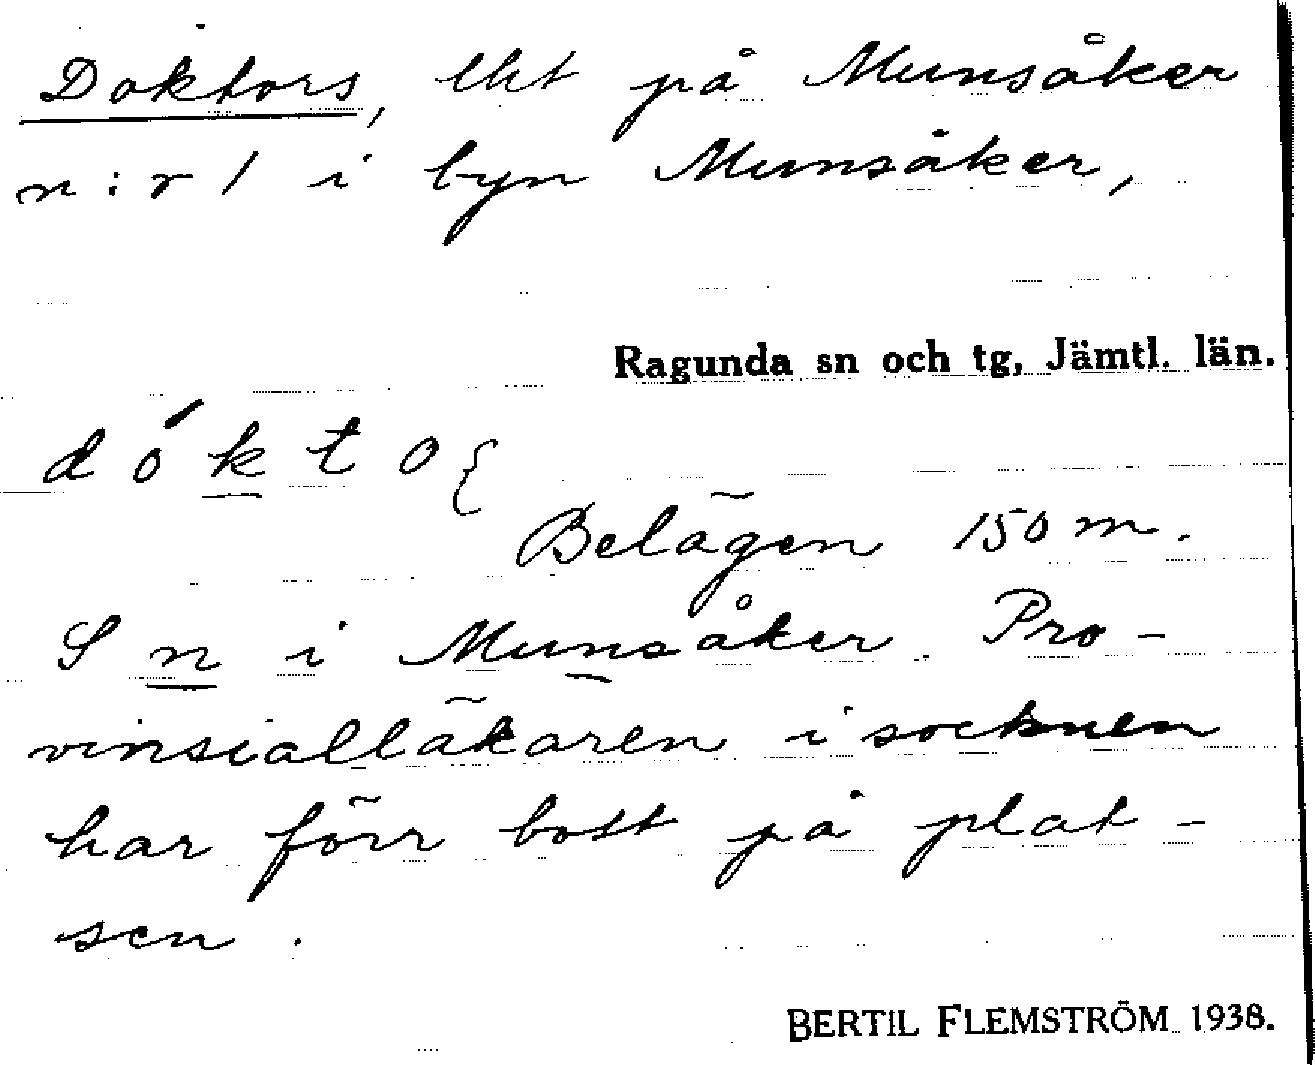 Doktors, lht på Munsåker
n:r 1 i byn Munsåker,
Ragunda sn och tg, Jämtl. län.
dókto
Belägen 150 m.
S n i Munsåker. Pro-
vinsialläkaren i socknen
har förr bott på plat-
sen.
BERTIL FLEMSTRÖM 1938.